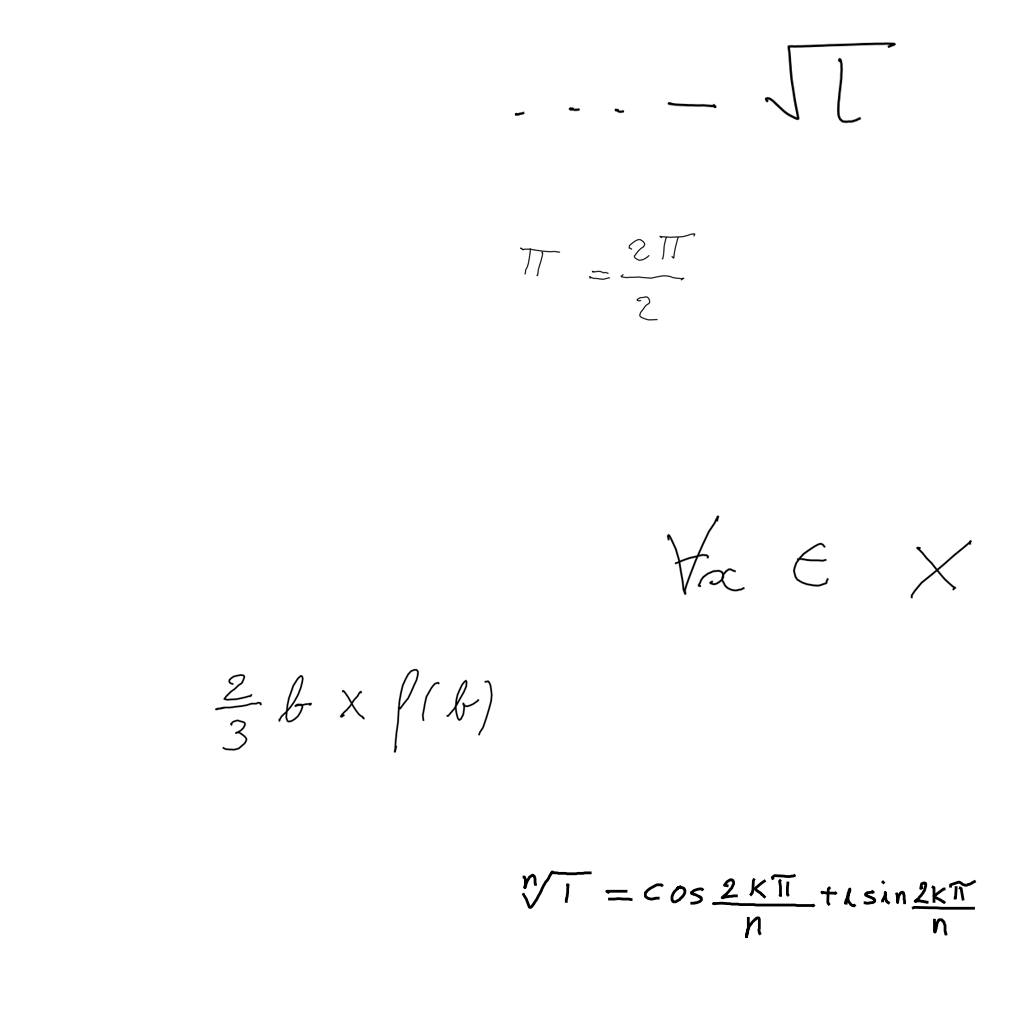 ... - √l
π = 2π/2
∀x ∈ X
2/3 b × f(b)
ⁿ√1 = cos 2kπ/n + i sin 2kπ/n